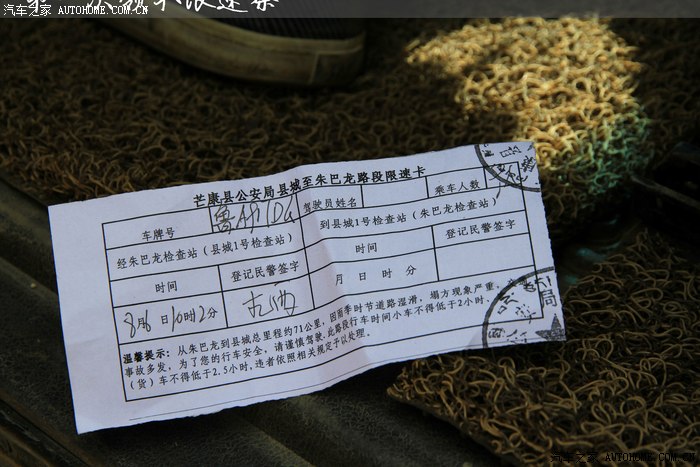 汽车之家 AUTOHOME.COM.CN
芒康县公安局县城至朱巴龙路段限速卡
车牌号 驾驶员姓名 乘车人数
经朱巴龙检查站（县城1号检查站） 到县城1号检查站（朱巴龙检查站）
时间 登记民警签字 时间 登记民警签字
8月6日10时2分 月 日 时 分
温馨提示：从朱巴龙到县城总里程约71公里，因雨季时节道路湿滑，塌方现象严重，
事故多发，为了您的行车安全，请谨慎驾驶，此路段行车时间小车不得低于2小时，
（货）车不得低于2.5小时，违者依照相关规定予以处理。
局
汽车之家 AUTOHOME.COM.CN